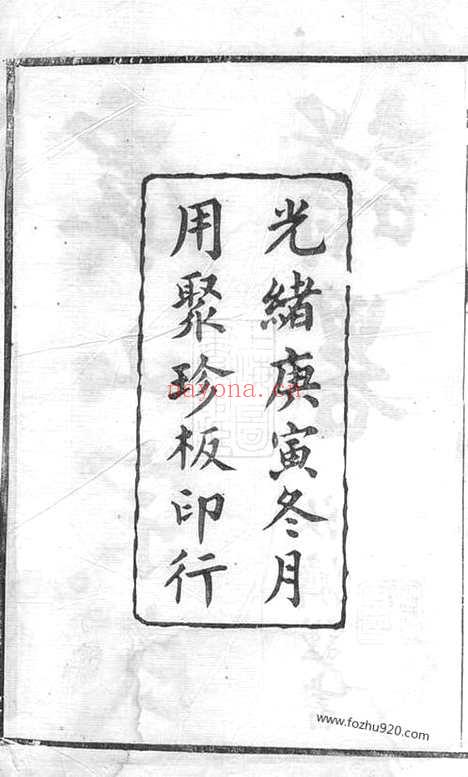 光緒庚寅冬月
用聚珍板印行
nayona.cn
www.fozhu920.com